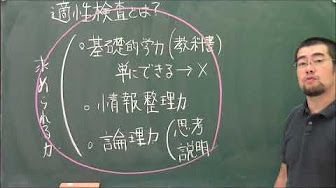 適性検査とは?
求められる力
○基礎的学力(教科書)
単にできる→×
○情報整理力
○論理力(思考
説明